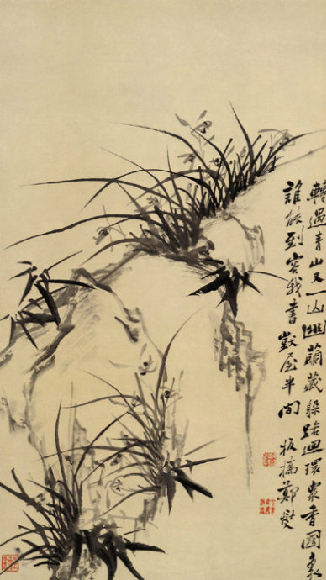 轉過青山又一山幽蘭藏躲路迴環衆香國裏
誰能到容我書獃屋半間 板橋鄭燮